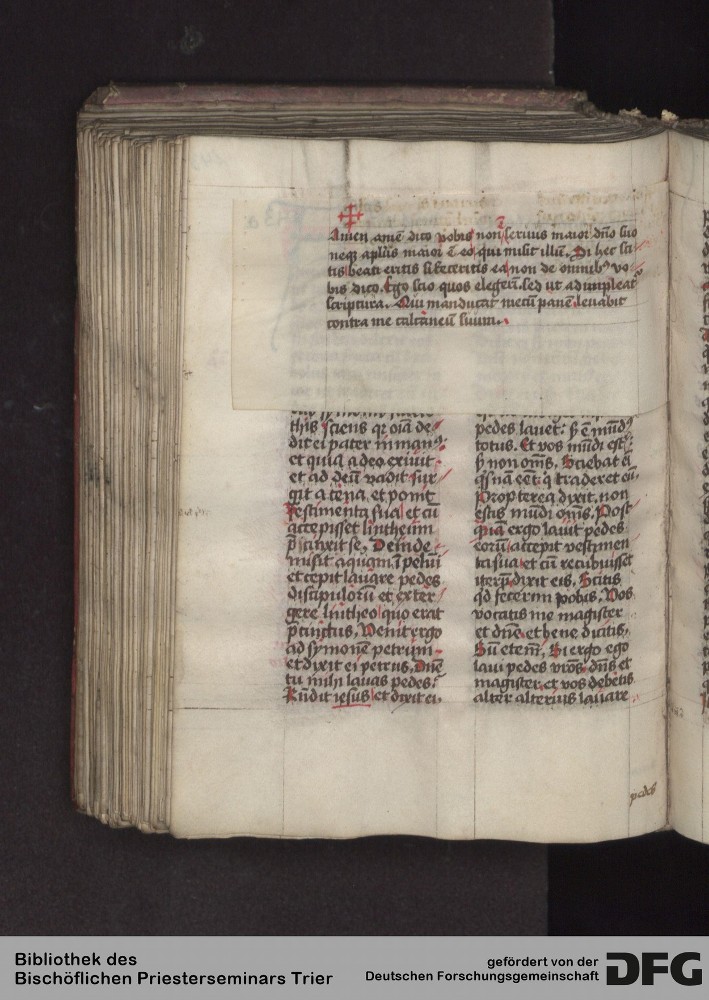 Amen amē dico vobis non seruus maior dn̄o suo
neqꝫ apl̄us maior ē eo qui misit illū. Si hec sci
tis beati eritis si feceritis ea non de omnibꝰ vo
bis dico. Ego scio quos elegerī. sed ut adimpleat᷑
scriptura. Qui manducat mecū panē leuabit
contra me calcaneū suum.
this sciens qꝛ oīa de
dit ei pater in manꝰ
et quia a deo exiuit
et ad deū vadit sur
git a cena et ponit
vestimenta sua et cū
accepisset lintheum
p̄cinxit se. Deinde
misit aquam ī peluī
et cepit lauare pedes
discipulorū et exter
gere lintheo quo erat
p̄cinctus. Venit ergo
ad symonē petrum
et dixit ei petrus. Dn̄e
tu mihi lauas pedes
Rn̄dit iesus et dixit ei.
pedes lauet. sꝫ ē mūdꝰ
totus. Et vos mūdi estꝭ
sꝫ non om̄s. Sciebat em̄
qͥsnā eēt qͥ traderet eū.
Propterea dixit. non
estis mūdi om̄s. Post
quā ergo lauit pedes
eorū accepit vestimen
ta sua et cū recubuisset
iterū dixit eis. Scitis
qͥd fecerim vobis. Vos
vocatis me magister
et dn̄e et bene dicitis.
Sū etem̄. Si ergo ego
laui pedes vr̄os dn̄s et
magister et vos debetis
alter alterius lauare
pedes
Bibliothek des
Bischöflichen Priesterseminars Trier
gefördert von der
Deutschen Forschungsgemeinschaft
DFG